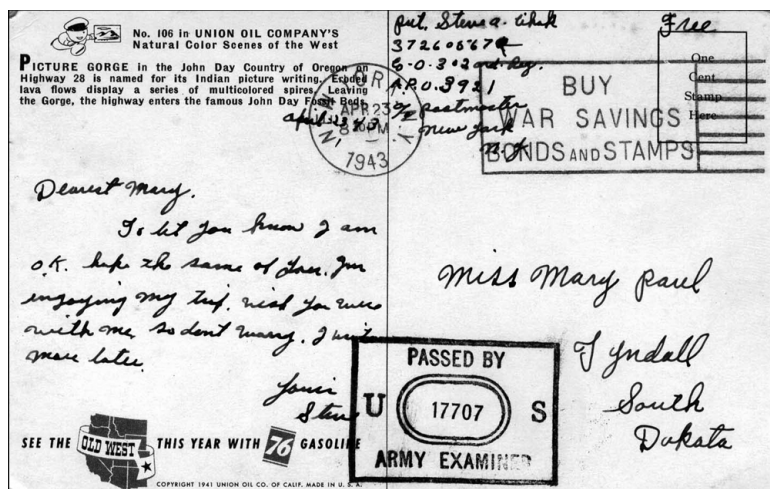 No. 106 in UNION OIL COMPANY'S
Natural Color Scenes of the West
PICTURE GORGE in the John Day Country of Oregon on
Highway 28 is named for its Indian picture writing. Eroded
lava flows display a series of multicolored spires. Leaving
the Gorge, the highway enters the famous John Day Fossil Beds.
April-23-43
Dearest Mary.
To let you know I am
O.K. hope the same of you. Im
enjoying my trip. wish you were
with me. so dont worry. I write
more later.
Yours
Steve
SEE THE OLD WEST THIS YEAR WITH 76 GASOLINE
COPYRIGHT 1941 UNION OIL CO. OF CALIF. MADE IN U. S. A.
Pvt. Steve A.
302nd Reg.
A.P.O. 3921
c/o Postmaster
New York
N.Y.
Free
One
Cent
Stamp
Here
APR 23
1943
N.Y.
BUY
WAR SAVINGS
BONDS AND STAMPS
Miss Mary Paul
Tyndall
South
Dakota
PASSED BY
U 17707 S
ARMY EXAMINER